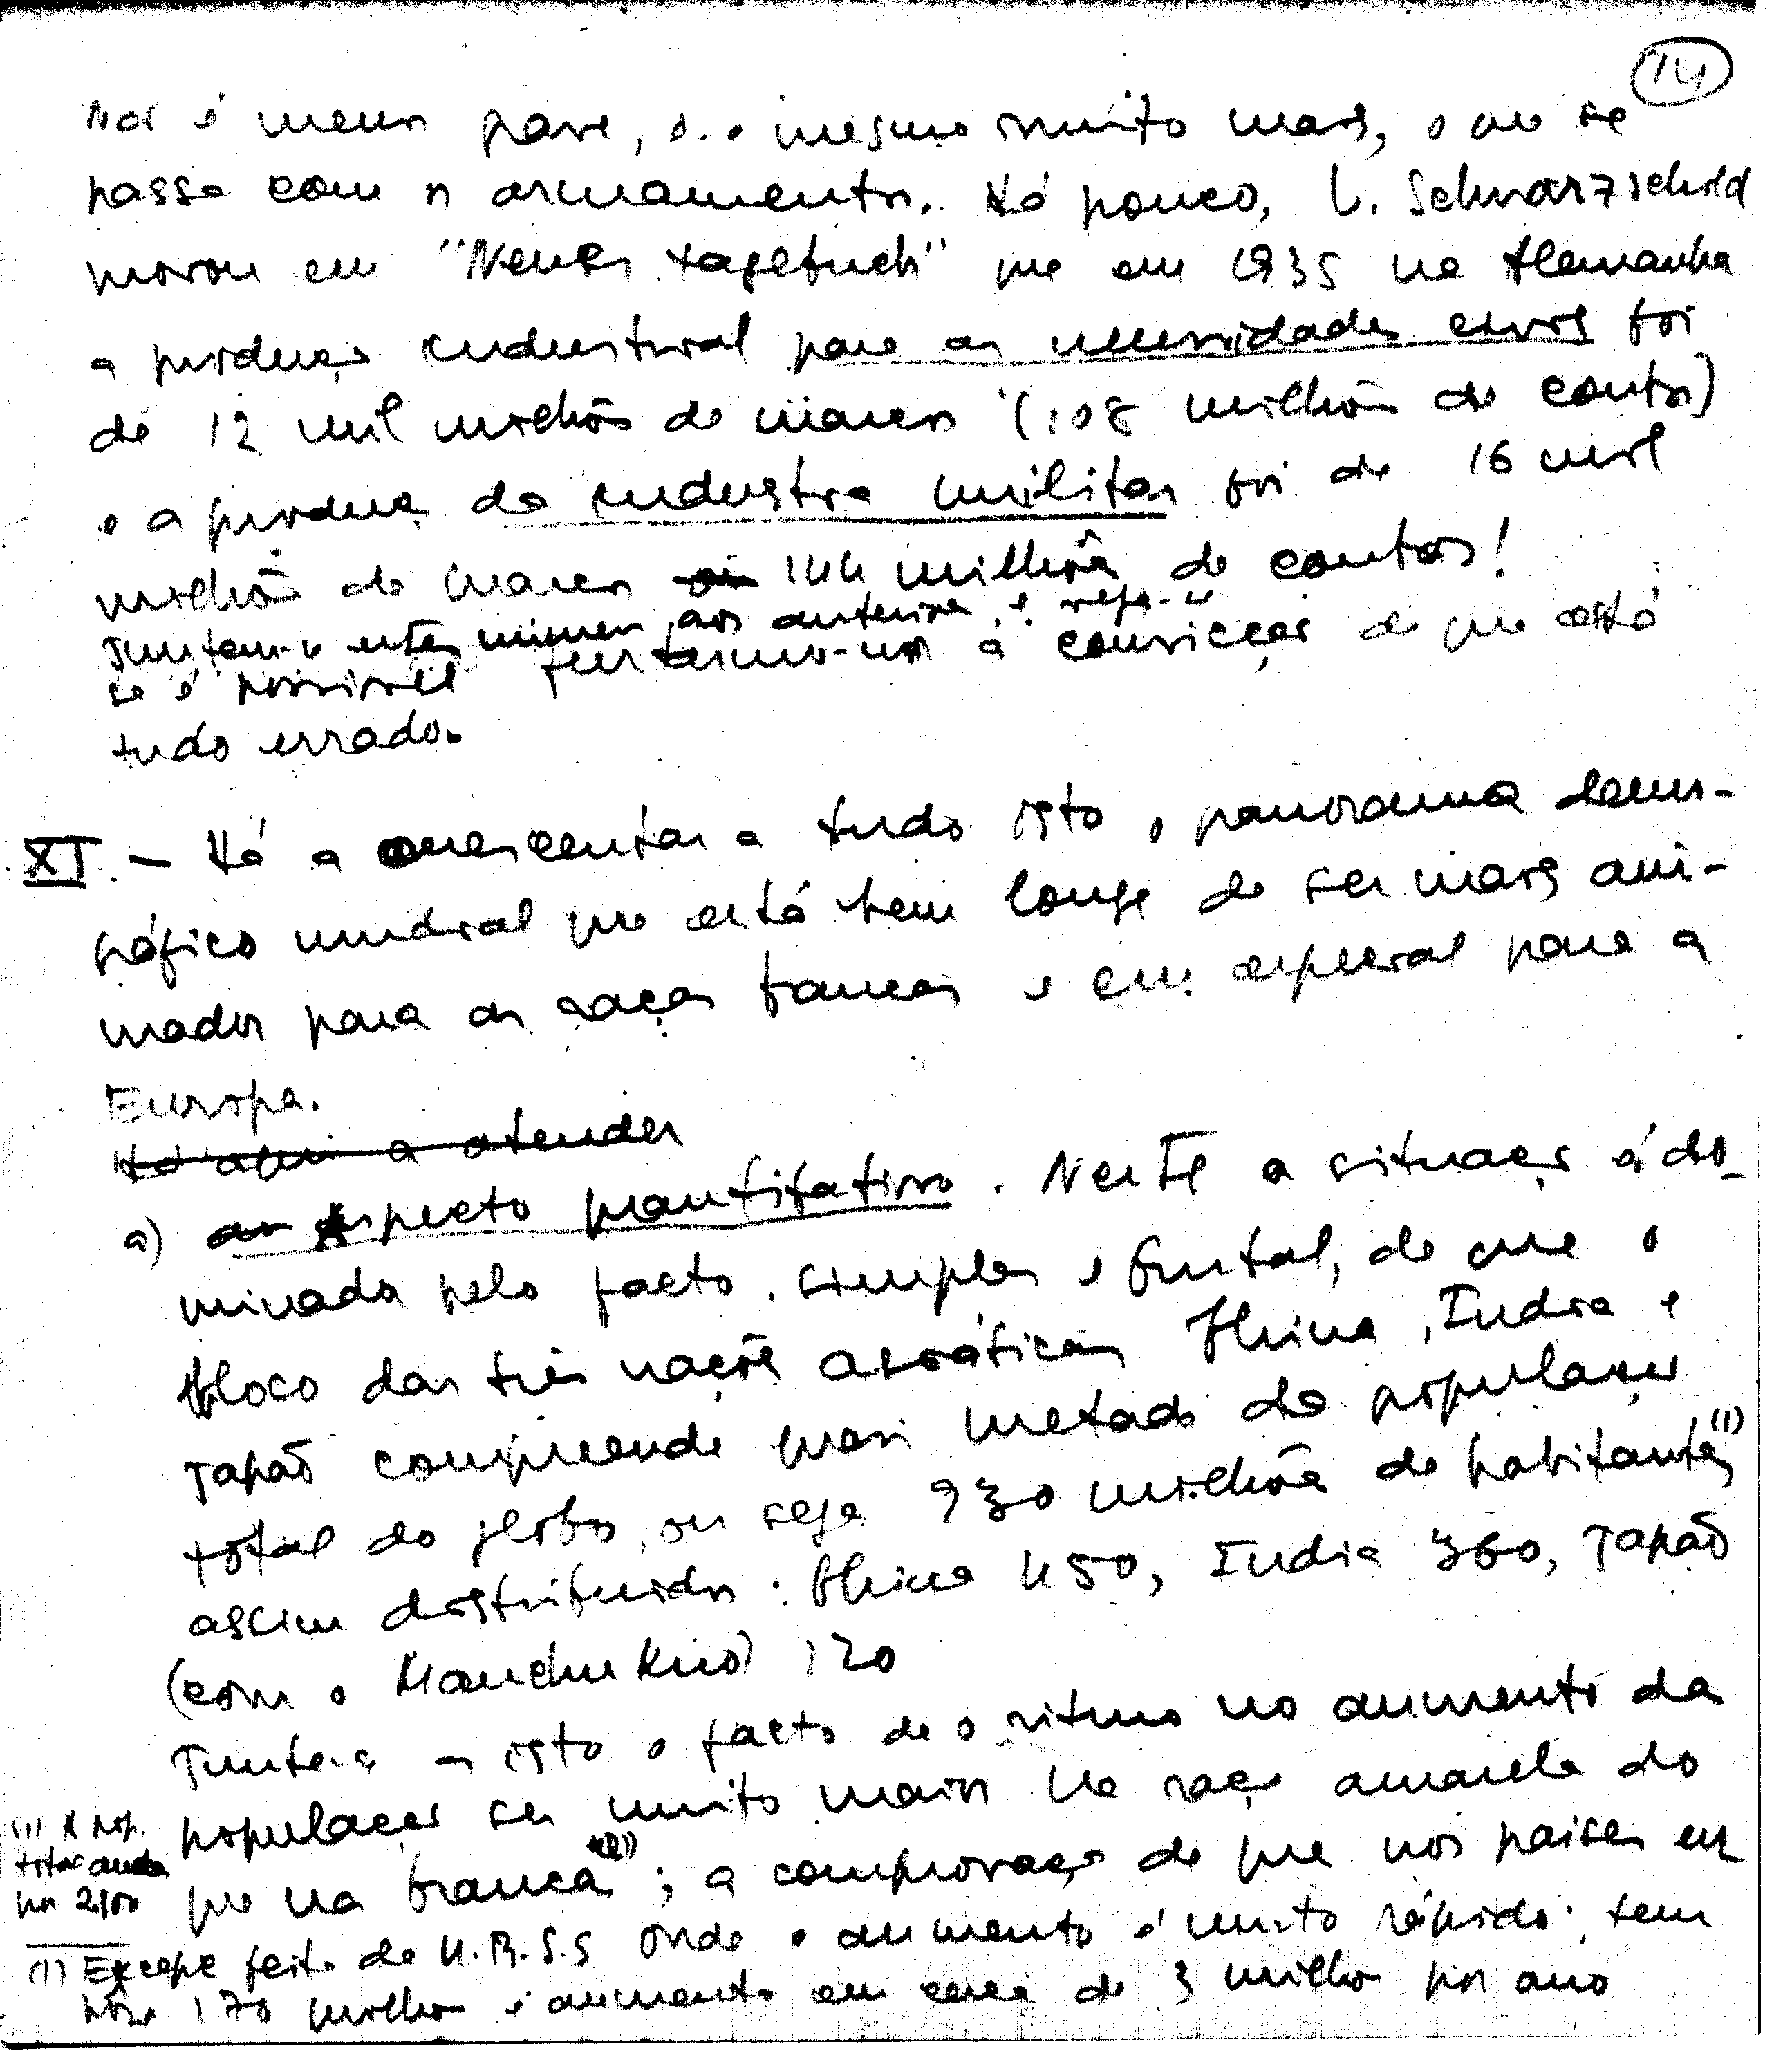 14
Não é menos grave, é mesmo muito mais, o que se
passa com os armamentos. Há pouco, L. Schwarzschild
mostrou em "Neues tagebuch" que em 1935 na Alemanha
a produção industrial para as necessidades civis foi
de 12 mil milhões de marcos (108 milhões de contos)
e a produção da industria militar foi de 16 mil
milhões de marcos ou 144 milhões de contos!
Juntem-se estes números aos anteriores e veja-se
se é possível furtarmo-nos à convicção de que está
tudo errado.
XI. — Há a acrescentar a tudo isto o panorama demo-
gráfico mundial que está bem longe de ser mais ani-
mador para as raças brancas e em especial para a
Europa.
Há aqui a atender
a) ao Aspecto quantitativo. Neste a situação é do-
minada pelo facto, simples e brutal, de que o
bloco das três nações asiáticas China, India e
Japão compreende quasi metade da população
total do globo, ou seja 930 milhões de habitantes (1)
assim distribuidos: China 450, India 360, Japão
(com o Manchukuo) 120
Junte-se a isto o facto de o ritmo no aumento da
população ser muito maior na raça amarela do
que na branca (1); a comprovação de que nos paises em
(1) A pop.
total anda
por 2100
(1) Excepç. feita da U.R.S.S onde o aumento é muito rápido; tem
hoje 170 milhões e aumenta em cerca de 3 milhões por ano